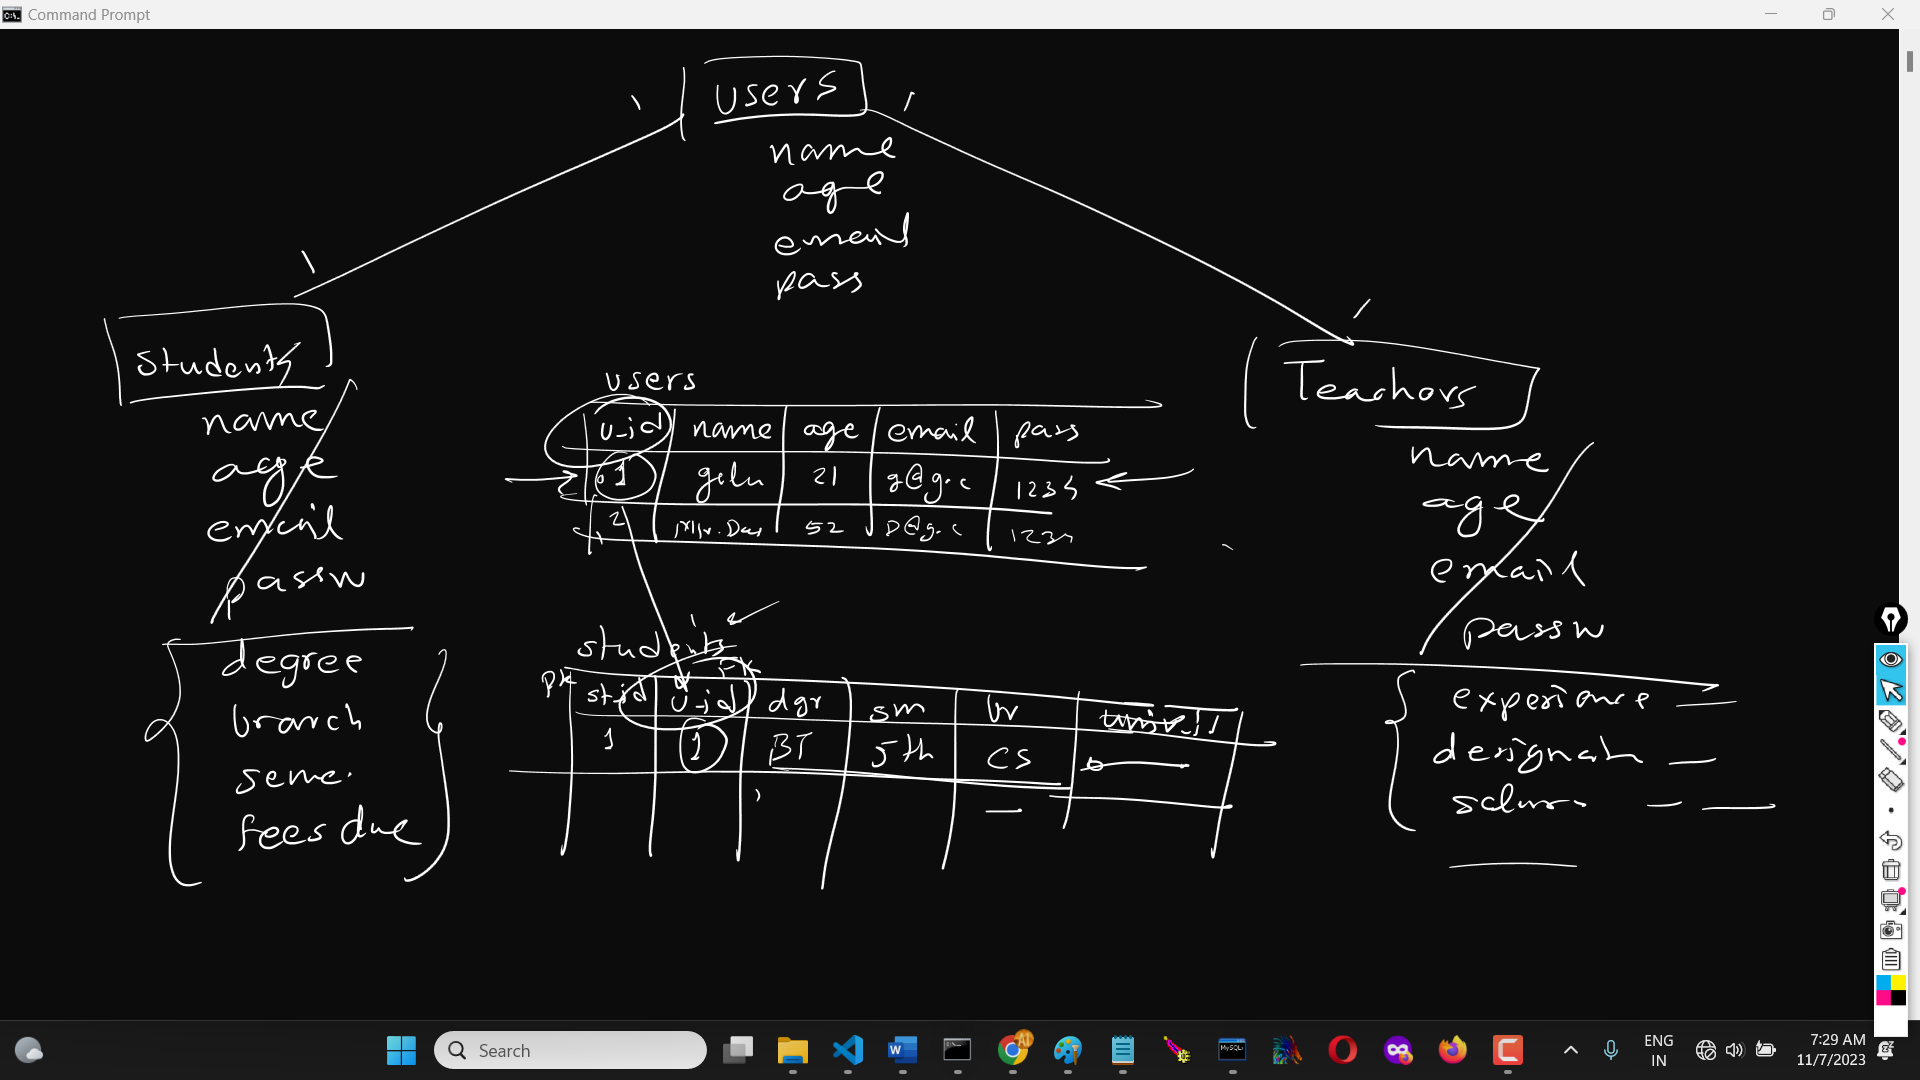 Command Prompt
users
name
age
email
pass
Students
name
age
email
passw
degree
branch
seme.
fees due
users
u_id name age email pass
1 21 g@g.c 1234
2 Mr. Das 52 D@g.c 123
students
PK FK
st_id u_id dgr sm br
1 1 BT 5th CS
Teachors
name
age
email
passw
experience
designatn
Search
ENG
IN
7:29 AM
11/7/2023